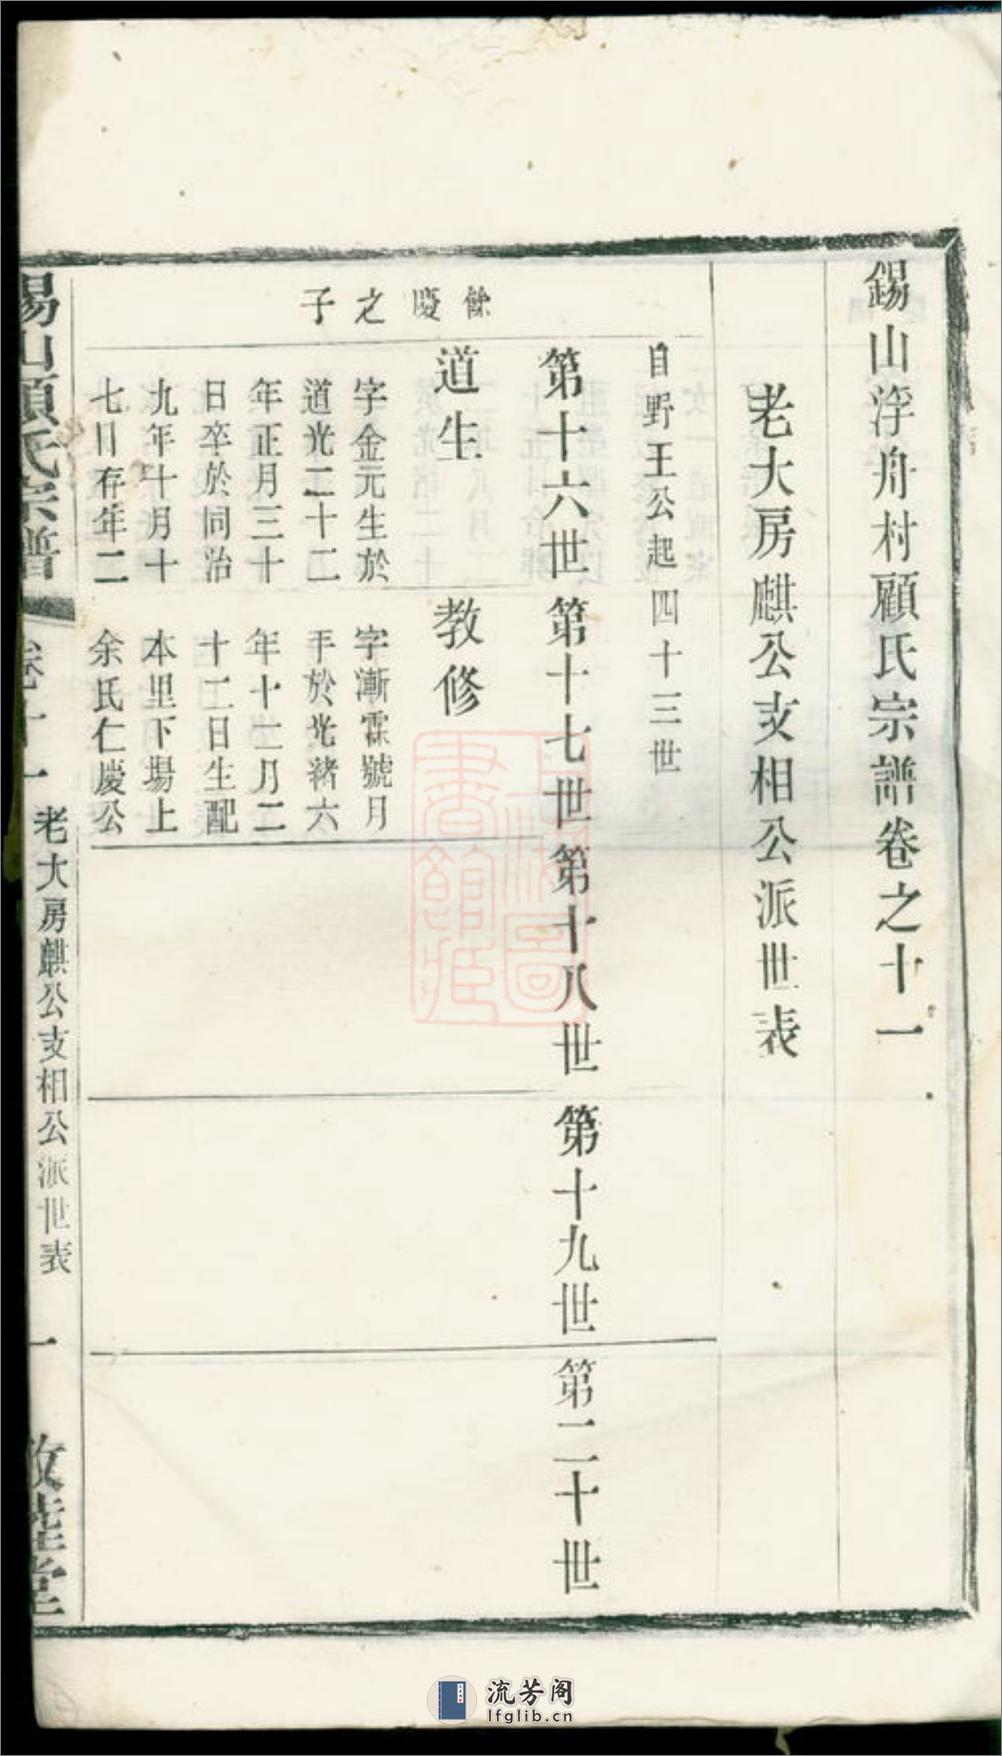 錫山浮舟村顧氏宗譜卷之十一
老大房麒公支相公派世表
自野王公起四十三世
第十六世
第十七世
第十八世
第十九世
第二十世
餘慶之子
道生
字金元生於
道光二十二
年正月三十
日卒於同治
九年十月十
七日存年二
教修
字漸霖號月
平於光緒六
年十二月二
十二日生配
本里下場上
余氏仁慶公
錫山顧氏宗譜
卷十一
老大房麒公支相公派世表
一
敦睦堂
上海圖書館藏
流芳阁
lfglib.cn